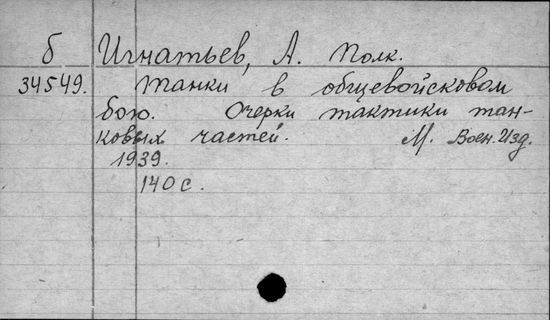 б Игнатьев, А. Полк.
34549. Танки в общевойсковом
бою. Очерки тактики тан-
ковых частей. М. Воен. Изд.
1939.
140 с.